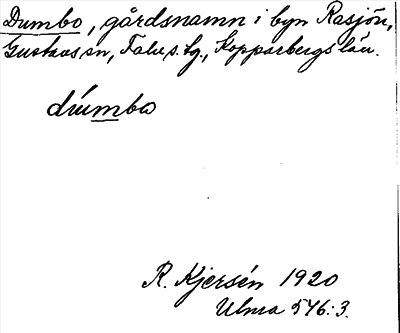 Dumbo, gårdsnamn i byn Rasjön,
Gustavs sn, Falu s. lg., Kopparbergs län.
dúmbo
R. Kjersén 1920
Ulma 546:3.